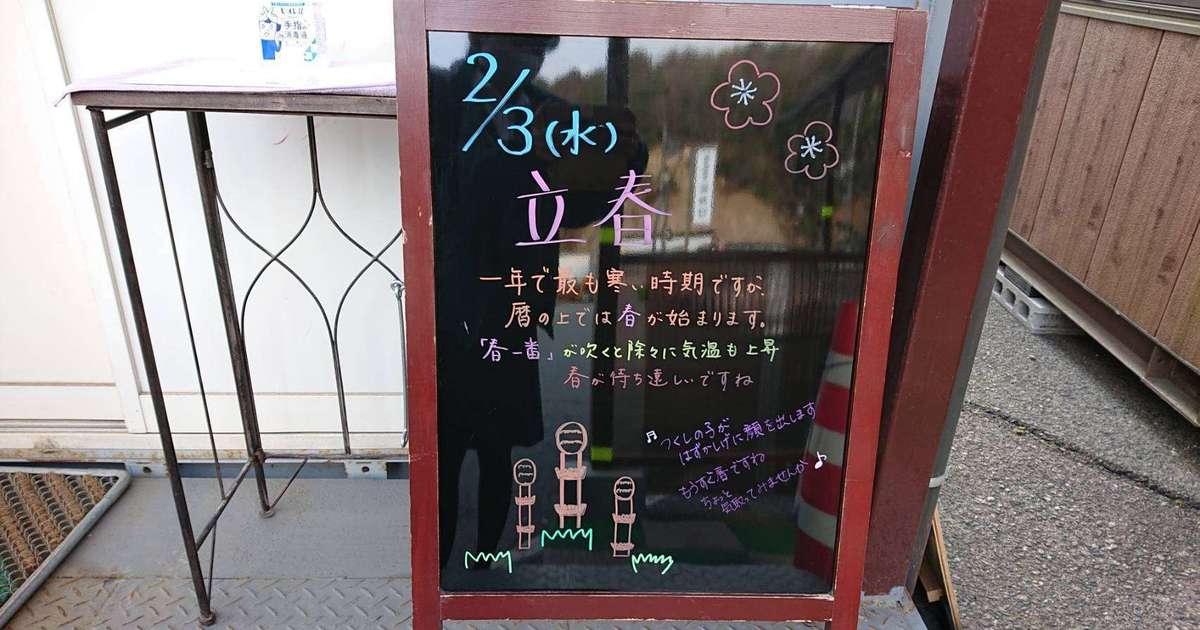 手指
消毒液
2/3(水)
立春
一年で最も寒い時期ですが、
暦の上では春が始まります。
「春一番」が吹くと除々に気温も上昇
春が待ち遠しいですね
♬つくしの子が
はずかしげに顔を出します
もうすぐ春ですね
ちょっと
気取ってみませんか♪